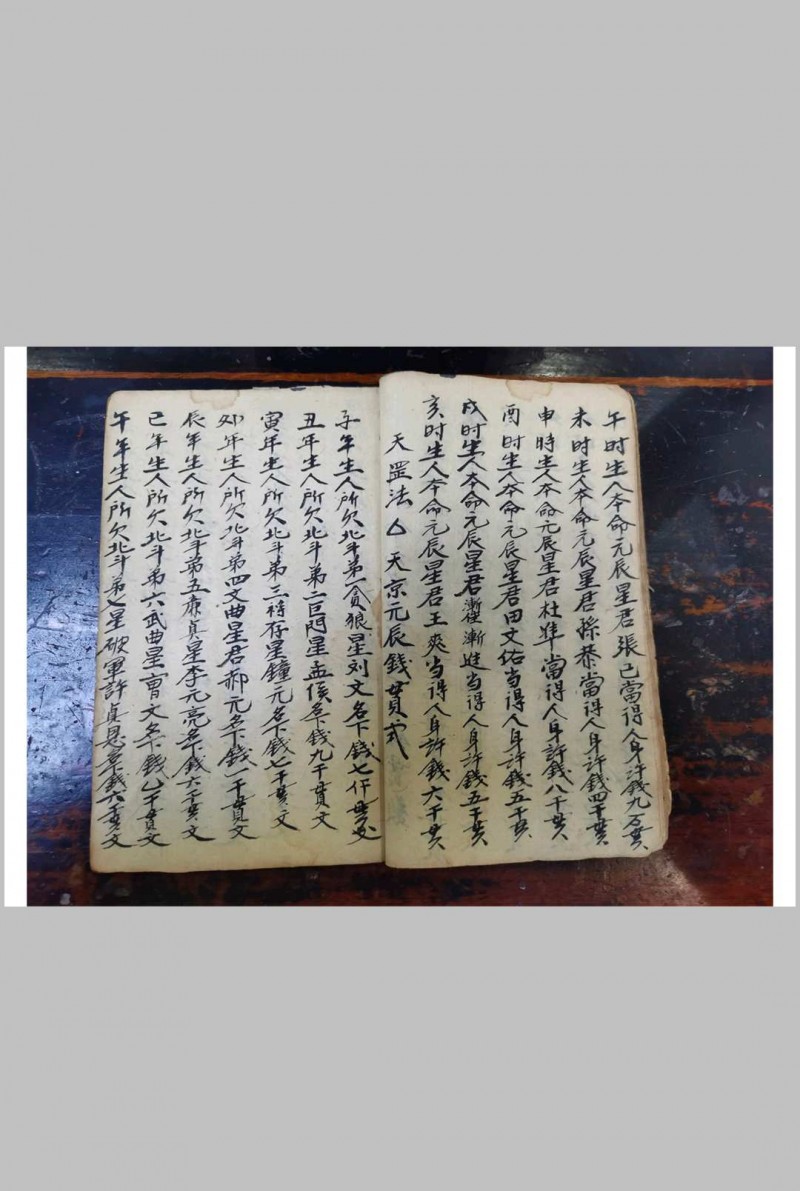 午时生人本命元辰星君張已當得人身許錢九万貫
未时生人本命元辰星君孫恭當得人身許錢四千貫
申時生人本命元辰星君杜準當得人身許錢八千貫
酉时生人本命元辰星君田文佑当得人身許錢五千貫
戌时生人本命元辰星君漸進当得人身許錢五千貫
亥时生人本命元辰星君王爽当得人身許錢六千貫
天罡法 天京元辰錢貫式
子年生人所欠北斗第一貪狼星刘文名下錢七仟貫文
丑年生人所欠北斗第二巨門星孟侯名下錢九千貫文
寅年生人所欠北斗第三祿存星鐘元名下錢七千貫文
卯年生人所欠北斗第四文曲星君郝元名下錢一千貫文
辰年生人所欠北斗第五廉貞星李元亮名下錢六千貫文
巳年生人所欠北斗第六武曲星曹文名下錢千貫文
午年生人所欠北斗第七星破軍許貞恩名下錢六千貫文